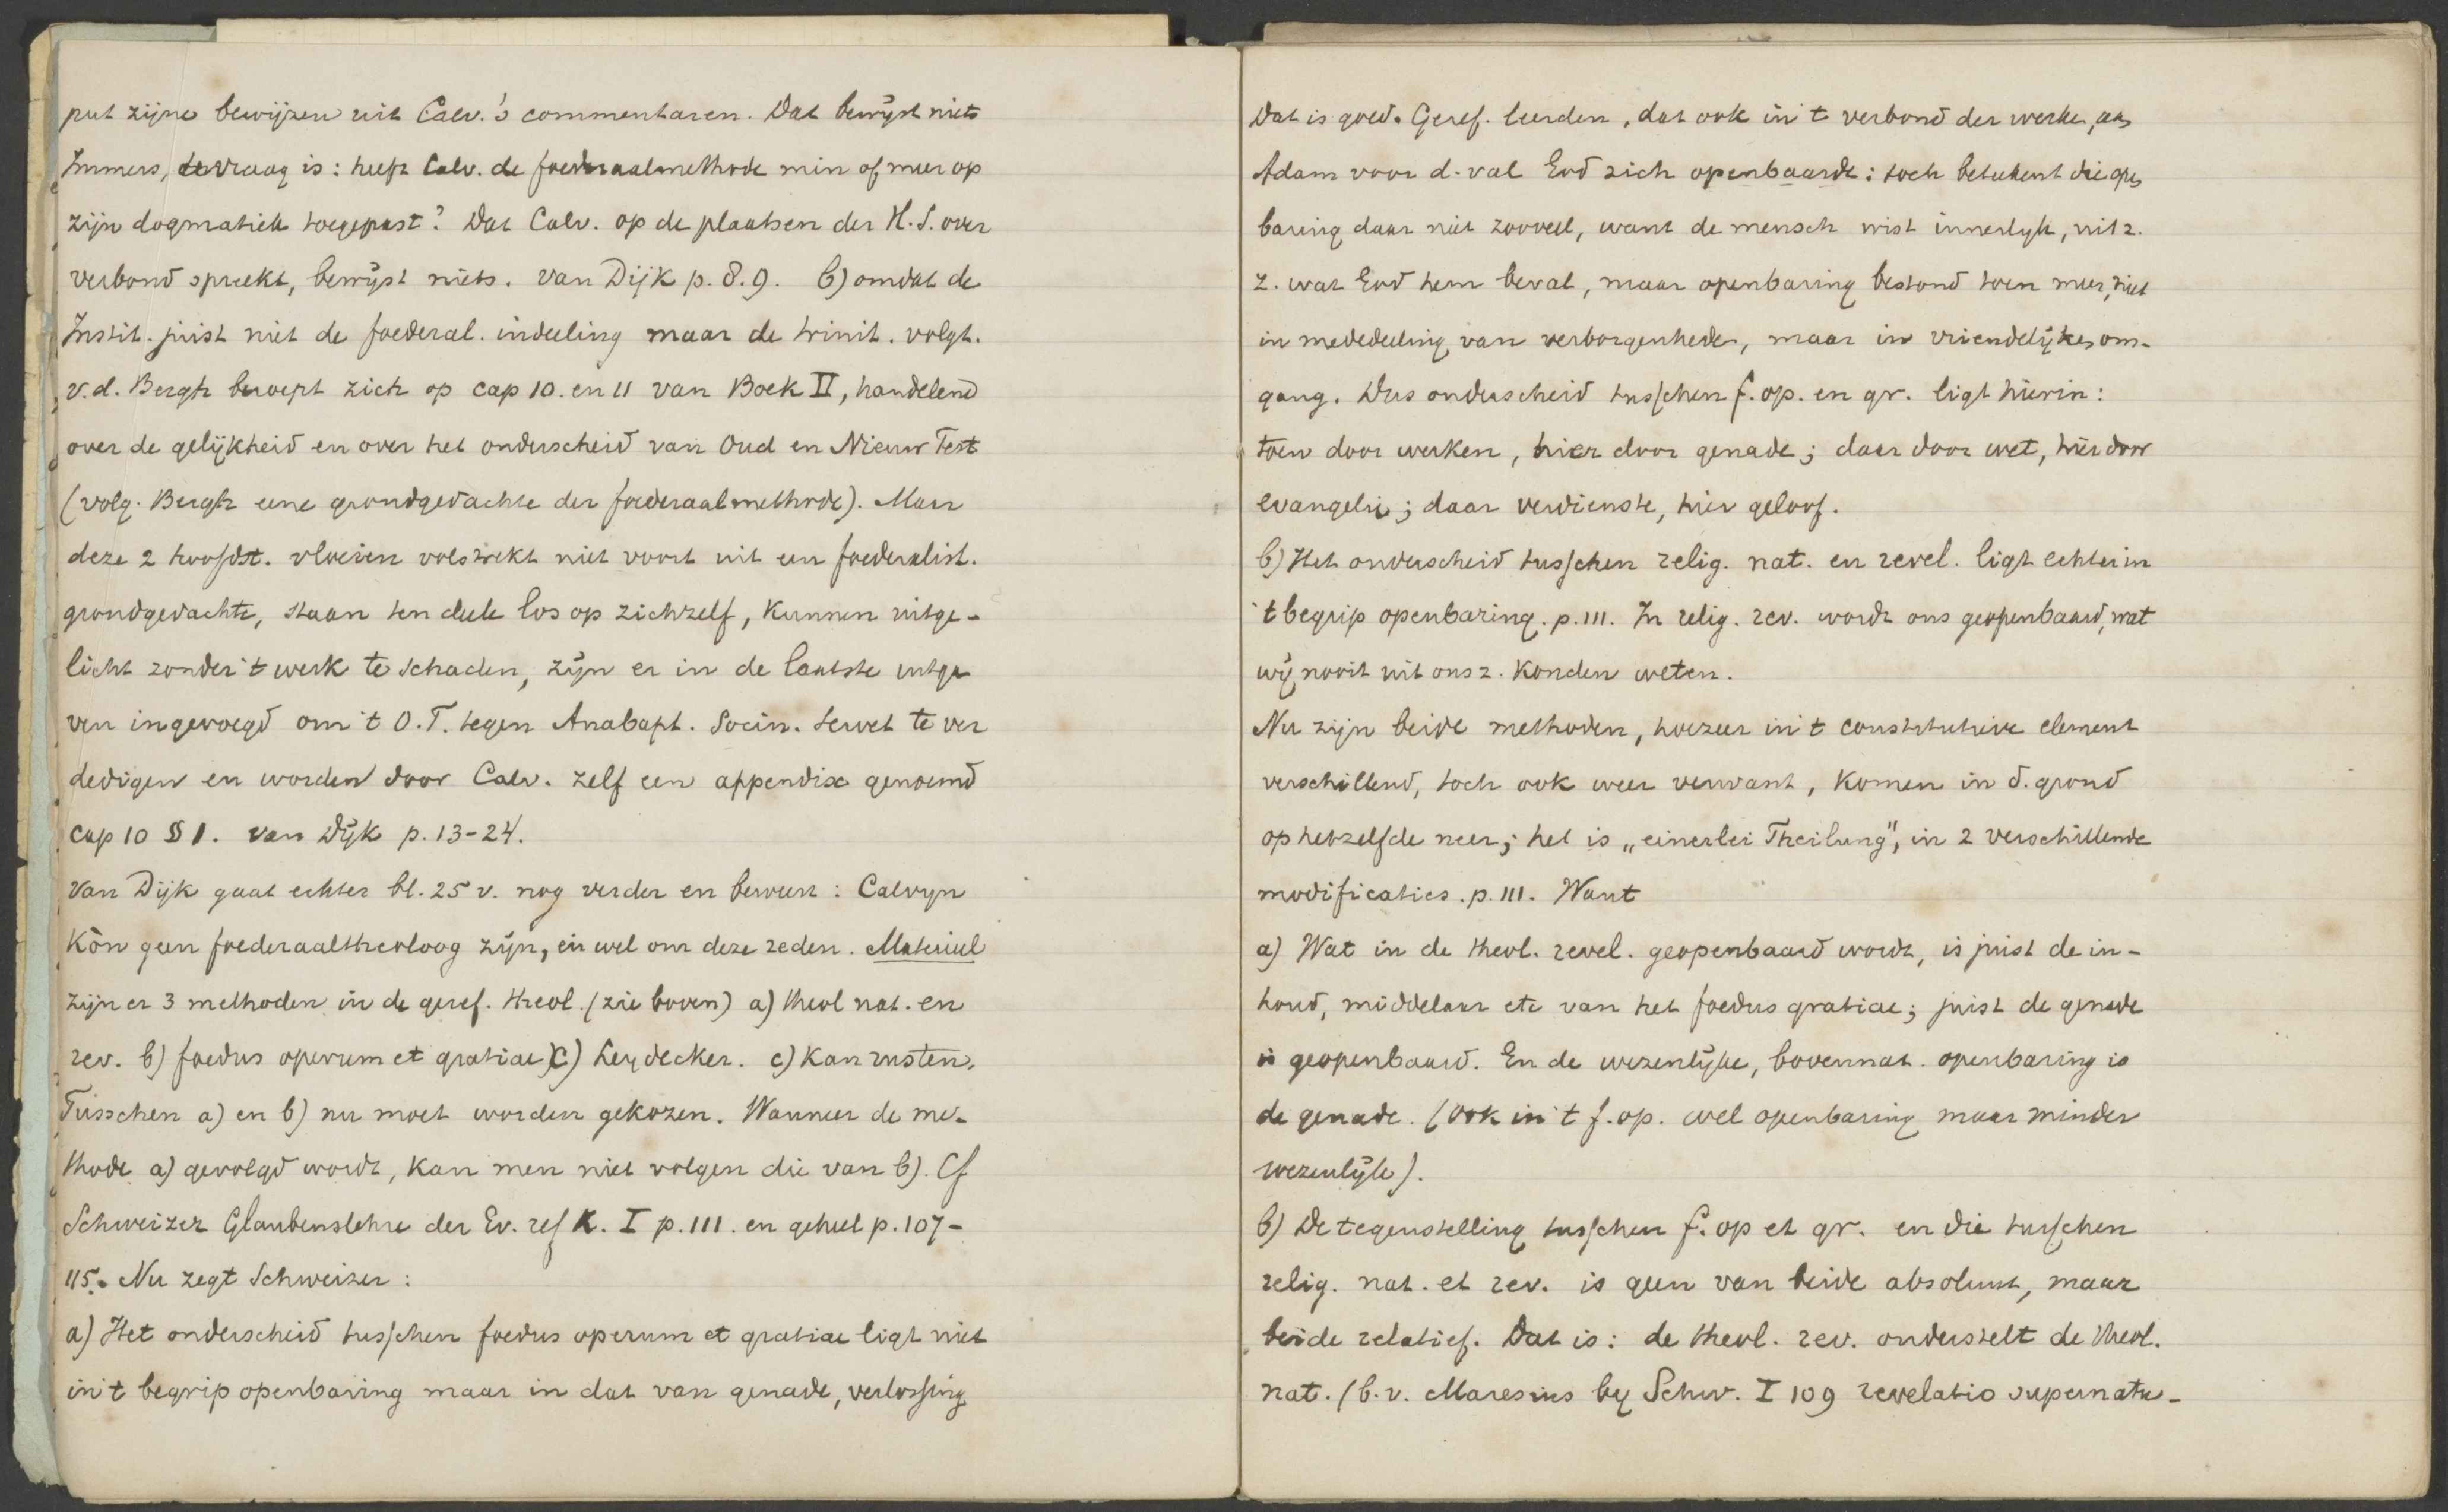 put zijne bewijzen uit Calv.'s commentaren. Dat bewijst niets
Immers, de vraag is: heeft Calv. de foederaalmethode min of meer op
zijn dogmatiek toegepast? Dat Calv. op de plaatsen der H.S. over
verbond spreekt, bewijst niets. van Dijk p. 8.9. b) omdat de
Instit. juist niet de foederal. indeeling maar de trinit. volgt.
v.d. Bergh beroept zich op cap 10. en 11 van Boek II, handelend
over de gelijkheid en over het onderscheid van Oud en Nieuw Test
(volg. Bergh eene grondgedachte der foederaalmethode). Maar
deze 2 hoofdst. vloeien volstrekt niet voort uit een foederalist.
grondgedachte, staan ten deele los op zichzelf, kunnen uitge-
licht zonder 't werk te schaden, zijn er in de laatste uitga
ven ingevoegd om 't O.T. tegen Anabapt. Socin. Servet te ver
dedigen en worden door Calv. zelf een appendix genoemd
cap 10 § 1. van Dijk p. 13-24.
Van Dijk gaat echter bl. 25 v. nog verder en beweert: Calvijn
kòn geen foederaaltheoloog zijn, en wel om deze reden. Materieel
zijn er 3 methoden in de geref. theol. (zie boven) a) theol nat. en
rev. b) foedus operum et gratiae c) Leydecker. c) kan rusten.
Tusschen a) en b) nu moet worden gekozen. Wanneer de me-
thode a) gevolgd wordt, kan men niet volgen die van b). Cf
Schweizer Glaubenslehre der Ev. ref K. I p. 111. en geheel p. 107-
115. Nu zegt Schweizer:
a) Het onderscheid tusschen foedus operum et gratiae ligt niet
in 't begrip openbaring maar in dat van genade, verlossing
Dat is goed. Geref. leerden, dat ook in 't verbond der werken, aan
Adam voor d. val God zich openbaarde: toch beteekent die open
baring daar niet zooveel, want de mensch wist innerlijk, uit z.
z. wat God hem beval, maar openbaring bestond toen meer, niet
in mededeeling van verborgenheden, maar in vriendelijken om-
gang. Dus onderscheid tusschen f. op. en gr. ligt hierin:
toen door werken, hier door genade; daar door wet, hier door
evangelie; daar verdienste, hier geloof.
b) Het onderscheid tusschen relig. nat. en revel. ligt echter in
't begrip openbaring. p. 111. In relig. rev. wordt ons geopenbaard, wat
wij nooit uit ons z. konden weten.
Nu zijn beide methoden, hoezeer in 't constitutieve element
verschillend, toch ook weer verwant, komen in d. grond
op hetzelfde neer; het is „einerlei Theilung", in 2 verschillende
modificaties. p. 111. Want
a) Wat in de theol. revel. geopenbaard wordt, is juist de in-
houd, middelaar etc van het foedus gratiae; juist de genade
is geopenbaard. En de wezenlijke, bovennat. openbaring is
de genade. (Ook in 't f. op. wel openbaring maar minder
wezenlijk).
b) De tegenstelling tusschen f. op et gr. en die tusschen
relig. nat. et rev. is geen van beide absoluut, maar
beide relatief. Dat is: de theol. rev. onderstelt de theol.
nat. (b.v. Maresius bij Schw. I 109 revelatio supernatu-